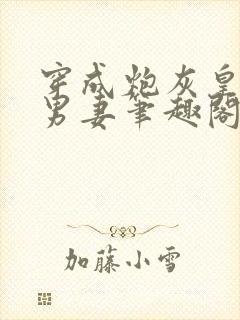 穿成炮灰皇
男妻笔趣阁
加藤小雪